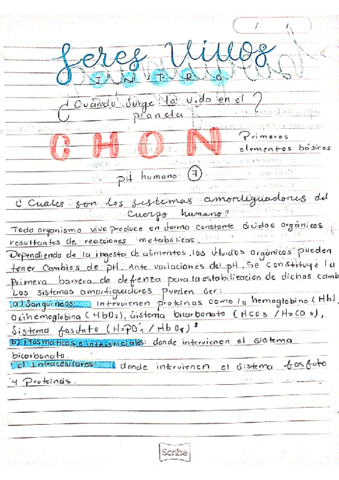 1
Seres Vivos
INTRO
¿Cuándo surge la vida en el planeta?
CHON Primeros elementos básicos
pH humano: 7
¿Cuales son los sistemas amortiguadores del
cuerpo humano?
Todo organismo vivo produce en forma constante ácidos orgánicos
resultantes de reacciones metabólicas.
Dependiendo de la ingesta de alimentos, los fluidos orgánicos pueden
tener cambios de pH. Ante variaciones del pH, se constituye la
primera barrera de defenza para la estabilización de dichos camb
Los sistemas amortiguadores pueden ser:
a) Sanguineos: intervienen proteínas como la hemoglobina (Hb),
Oxihemoglobina (HbO2), sistema bicarbonato (HCO3/H2CO3),
Sistema fosfato
b) Plasmaticos e intersticiales: donde intervienen el sistema
bicarbonato.
c) Intracelulares: donde intervienen el sistema fosfato
y Proteinas.
Scribe